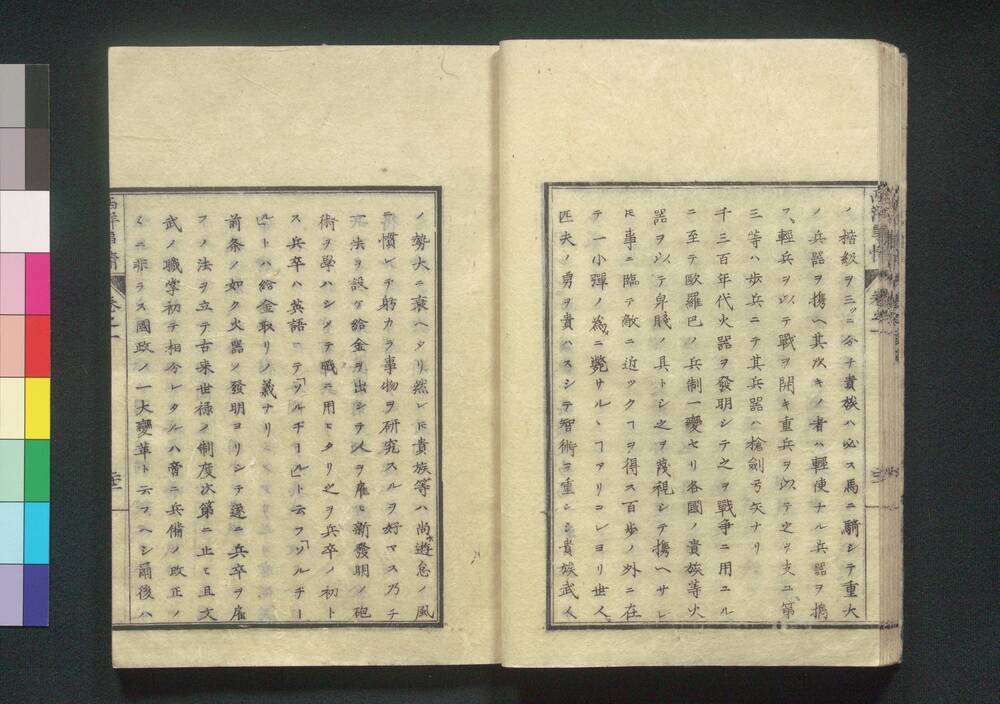 ノ揩級ヲ三ツニ分チ貴族ハ必ス馬ニ騎シテ重大
ノ兵器ヲ携ヘ其次キノ者ハ輕便ナル兵器ヲ携
フ、輕兵ヲ以テ戰ヲ開キ重兵ヲ以テ之ヲ支ユ第
三等ハ歩兵ニテ其兵器ハ槍劍弓矢ナリ
千三百年代火器ヲ發明シテ之ヲ戰争ニ用ユル
ニ至テ歐羅巴ノ兵制一變セリ各國ノ貴族等火
器ヲ以テ卑賤ノ具トシ之ヲ蔑視シテ携ヘサレ
𪜈事ニ臨テ敵ニ近ックヿヲ得ス百歩ノ外ニ在
テ一小彈ノ為ニ斃サルヽヿアリコレヨリ世人
匹夫ノ勇ヲ貴ハスシテ智術ヲ重ンシ貴族武人
ノ勢大ニ衰ヘタリ然レ𪜈貴族等ハ尚遊怠ノ風
慣レテ躬カラ事物ヲ研究スルヲ好マス乃チ
法ヲ設ケ給金ヲ出シテ人ヲ雇ヒ新發明ノ砲
術ヲ學ハシメテ戰ニ用ヒタリ之ヲ兵卒ノ初ト
ス兵卒ハ英語ニテ「ソルヂール」ト云フ「ソルヂー
ル」トハ給金取リノ義ナリ
前条ノ如ク火器ノ發明ヨリシテ遂ニ兵卒ヲ雇
フノ法ヲ立テ古来世禄ノ制度次第ニ止ミ且文
武ノ職掌初テ相分レタルハ啻ニ兵備ノ改正ノ
ミニ非ラス國政ノ一大變革ト云フヘシ爾後ハ